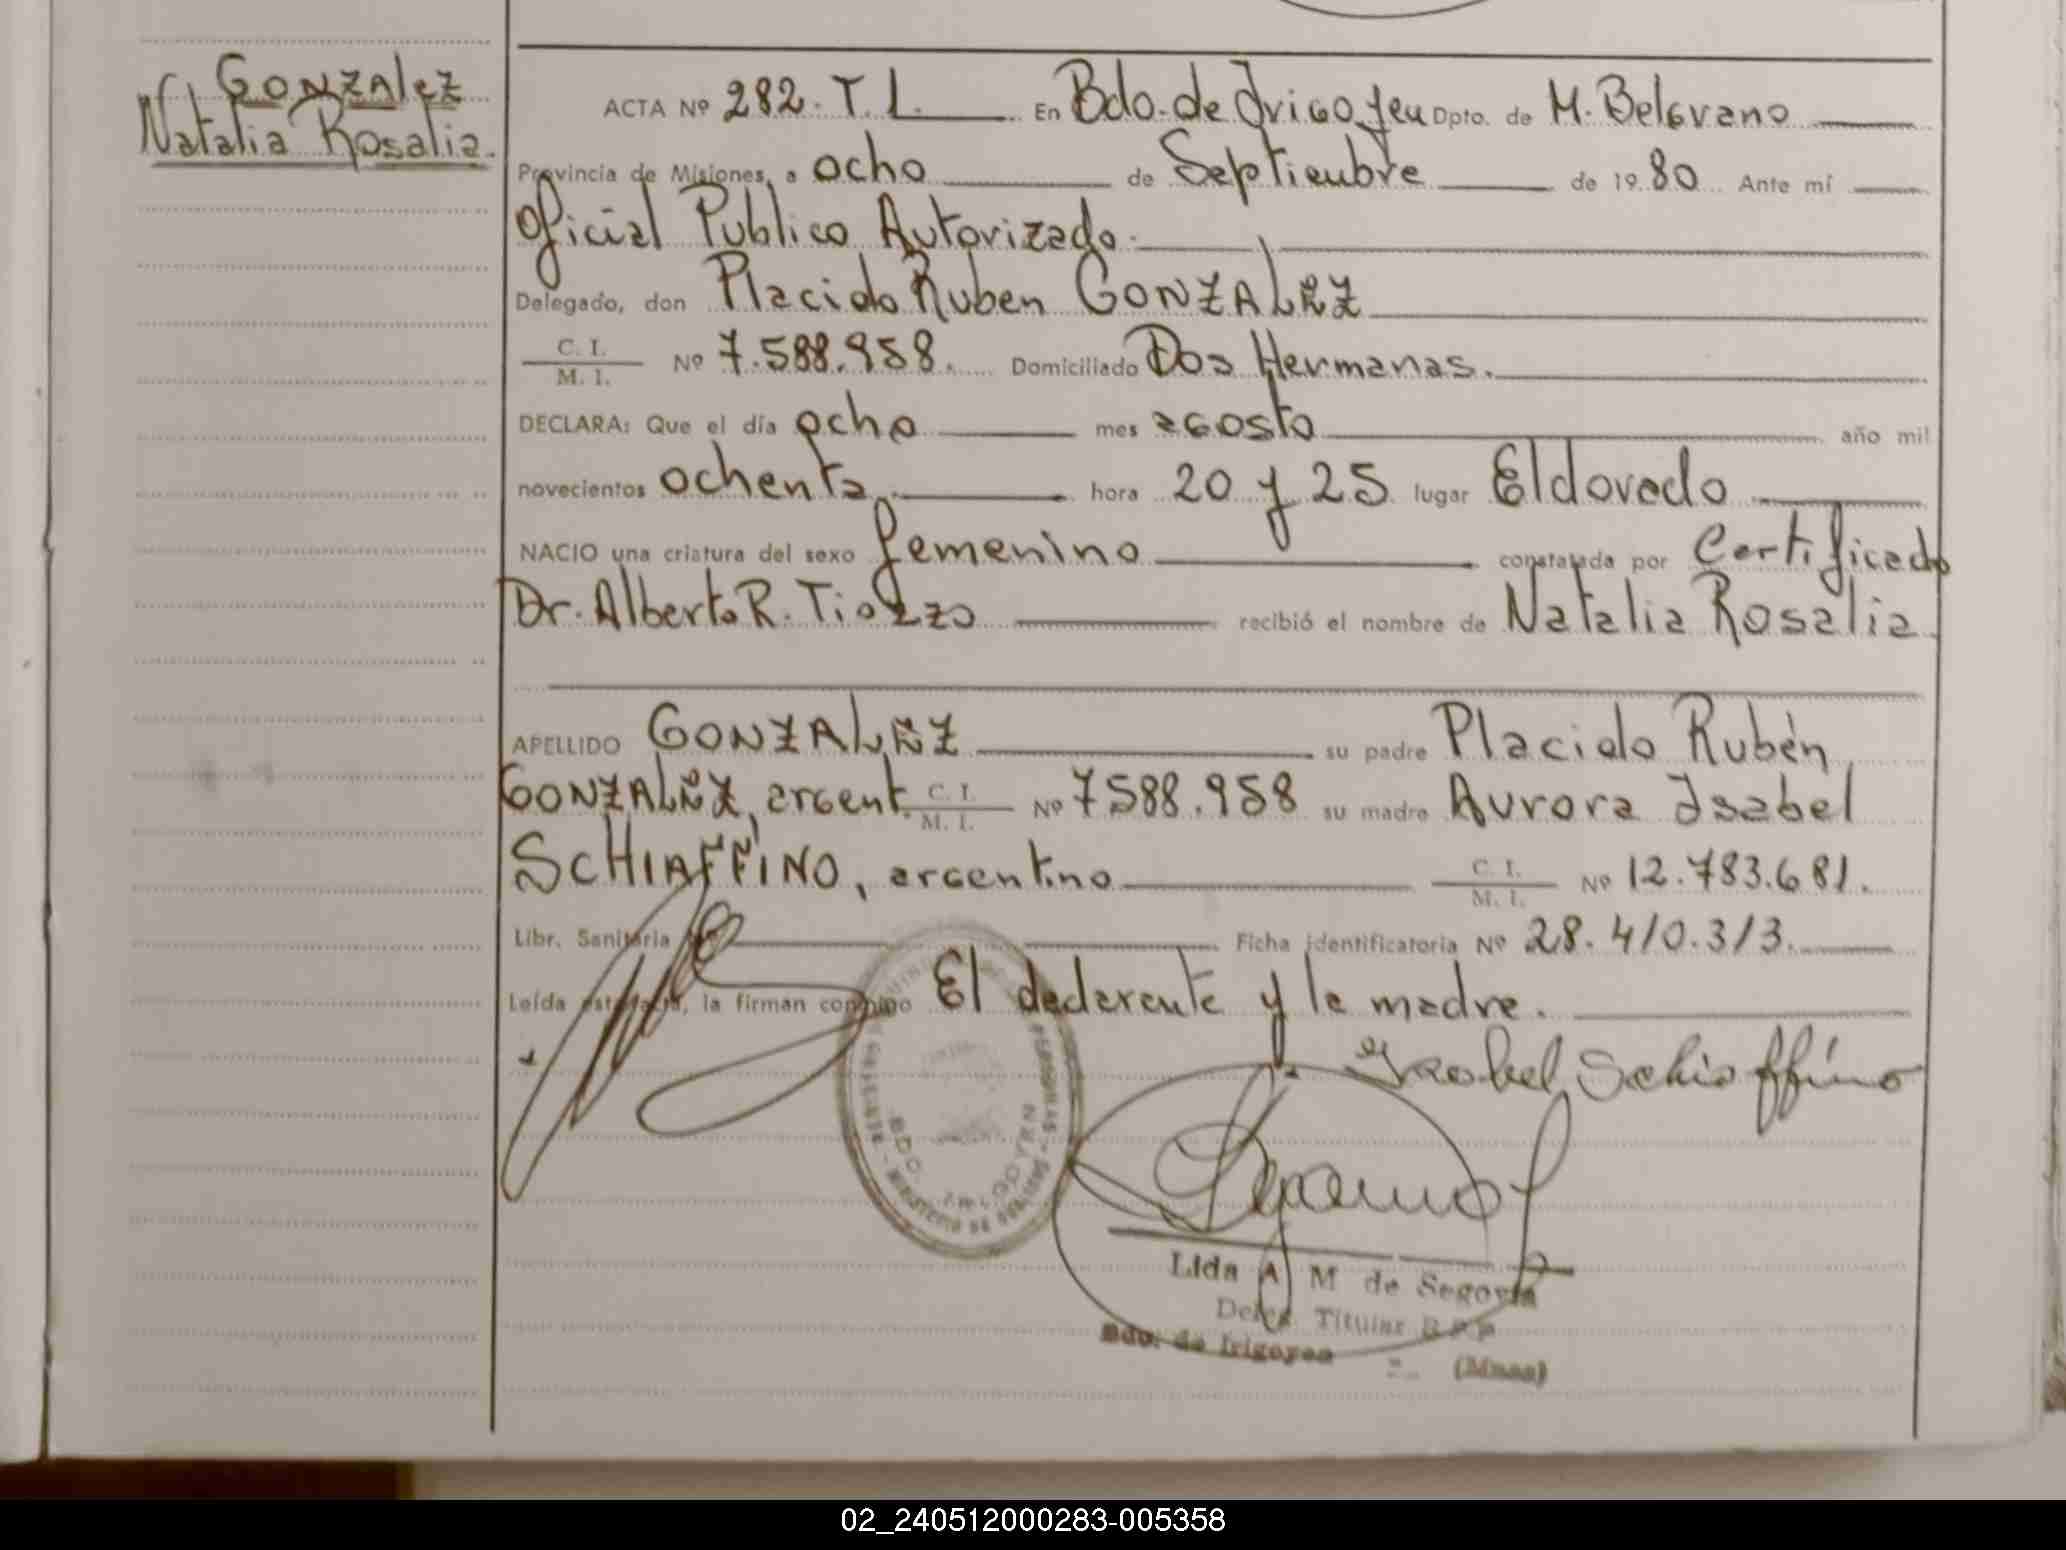 Gonzalez
Natalia Rosalia.
ACTA Nº 282. T. 1. En Bdo. de Irigoyen Dpto. de M. Belgrano
Provincia de Misiones, a ocho de Septiembre de 1980 Ante mí
Oficial Publico Autorizado.
Delegado, don Placido Ruben GONZALEZ
C. I.
M. I. Nº 7.588.958. Domiciliado Dos Hermanas.
DECLARA: Que el día ocho mes agosto año mil
novecientos ochenta hora 20 y 25 lugar Eldorado
NACIO una criatura del sexo femenino constatada por Certificado
Dr. Alberto R. Tiozzo recibió el nombre de Natalia Rosalia.
APELLIDO GONZALEZ su padre Placido Rubén
GONZALEZ, argent. C. I. M. I. Nº 7588.958 su madre Aurora Isabel
SCHIAFFINO, argentino C. I. M. I. Nº 12.783.681.
Libr. Sanitaria Ficha identificatoria Nº 28.410.313.
Leída esta acta, la firman conmigo El declarante y la madre.
Isabel Schiaffino
BDO. IRIGOYEN
Lida A M de Segovia
Deleg Titular R P P
Bdo. de Irigoyen (Mnes)
02_240512000283-005358